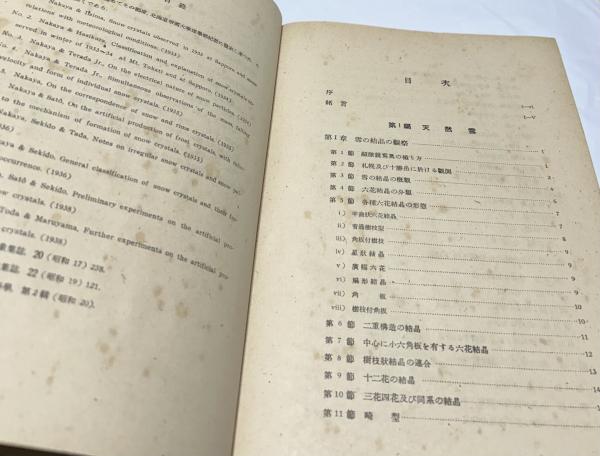 目錄
Nakaya & Iizima, Snow crystals observed in 1932 at Sapporo and some
relations with meteorological conditions. (1934)
No. 2. Nakaya & Hasikura, Classification and explanation of snow crystals ob-
served in winter of 1933~34 at Mt. Tokati and at Sapporo. (1934)
No. 3. Nakaya & Terada Jr., On the electrical nature of snow particles. (1934)
Nakaya & Terada Jr., Simultaneous observations of the mass, falling
velocity and form of individual snow crystals. (1935)
Nakaya, On the correspondence of snow and rime crystals. (1935)
Nakaya & Satô, On the artificial production of frost crystals, with
to the mechanism of formation of snow crystals. (1935)
Nakaya, Sekido & Tada, Notes on irregular snow crystals and snow pel-
(1936)
Nakaya & Sekido, General classification of snow crystals and their
occurrence. (1936)
Satô & Sekido, Preliminary experiments on the artificial pro-
snow crystals. (1938)
Toda & Maruyama, Further experiments on the artificial pro-
crystals. (1938)
集誌. 20 (昭和 17) 238.
集誌. 22 (昭和 19) 121.
學, 第 2 輯 (昭和 20).
目次
序 i—vi
緒言 i—v
第1編 天然雪
第1章 雪の結晶の觀察 1
第 1 節 顯微鏡寫眞の撮り方 1
第 2 節 札幌及び十勝岳に於ける觀測 2
第 3 節 雪の結晶の概觀
第 4 節 六花結晶の分類 6
第 5 節 各種六花結晶の形態 7
i) 平面狀六花結晶 7
ii) 普通樹枝型 7
iii) 角板付樹枝 8
iv) 星狀結晶 9
v) 廣幅六花 9
vi) 扇形結晶 9
vii) 角板 9
viii) 樹枝付角板 10
第 6 節 二重構造の結晶 11
第 7 節 中心に小六角板を有する六花結晶 12
第 8 節 樹枝狀結晶の連合 13
第 9 節 十二花の結晶 14
第 10 節 三花四花及び同系の結晶
第 11 節 畸型